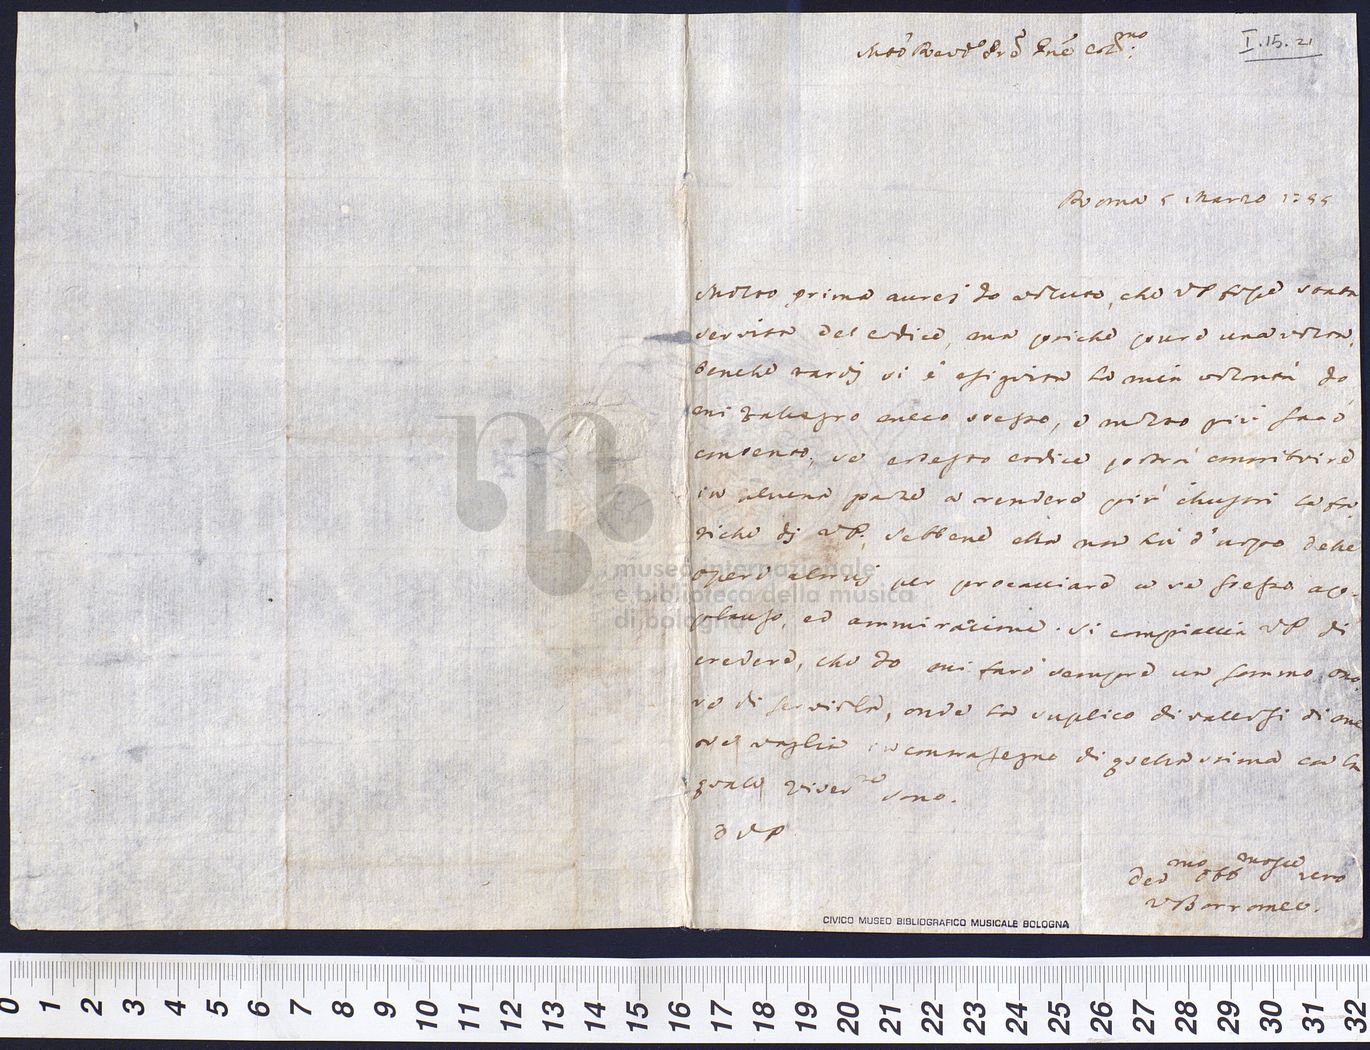 I.15.21
Molto Revdo Pre Pne Colmo
Roma 5 Marzo 1755
Molto prima aurei Io voluto, che VP fosse stata
servita del codice, ma poiche pure una volta,
benche tardi si è esiguita la mia volontà Io
mi rallegro meco stesso, e molto più sarò
contento, se codesto codice potrà contribuire
in alcuna parte a rendere più illustri le fa
tiche di VP, sebbene ella non hà d'uopo delle
opere altrui per procacciare a se stessa ap-
plauso, ed ammirazione. Si compiaccia VP di
credere, che Io mi farò sempre un sommo ono
re di servirla, onde la suplico di valersi di me
ove vaglia in contrasegno di quella stima con la
quale river.te sono.
D V P
Devmo Obbmo Servo vero
VBorromeo.
CIVICO MUSEO BIBLIOGRAFICO MUSICALE BOLOGNA
museo internazionale
e biblioteca della musica
di bologna
0 1 2 3 4 5 6 7 8 9 10 11 12 13 14 15 16 17 18 19 20 21 22 23 24 25 26 27 28 29 30 31 32